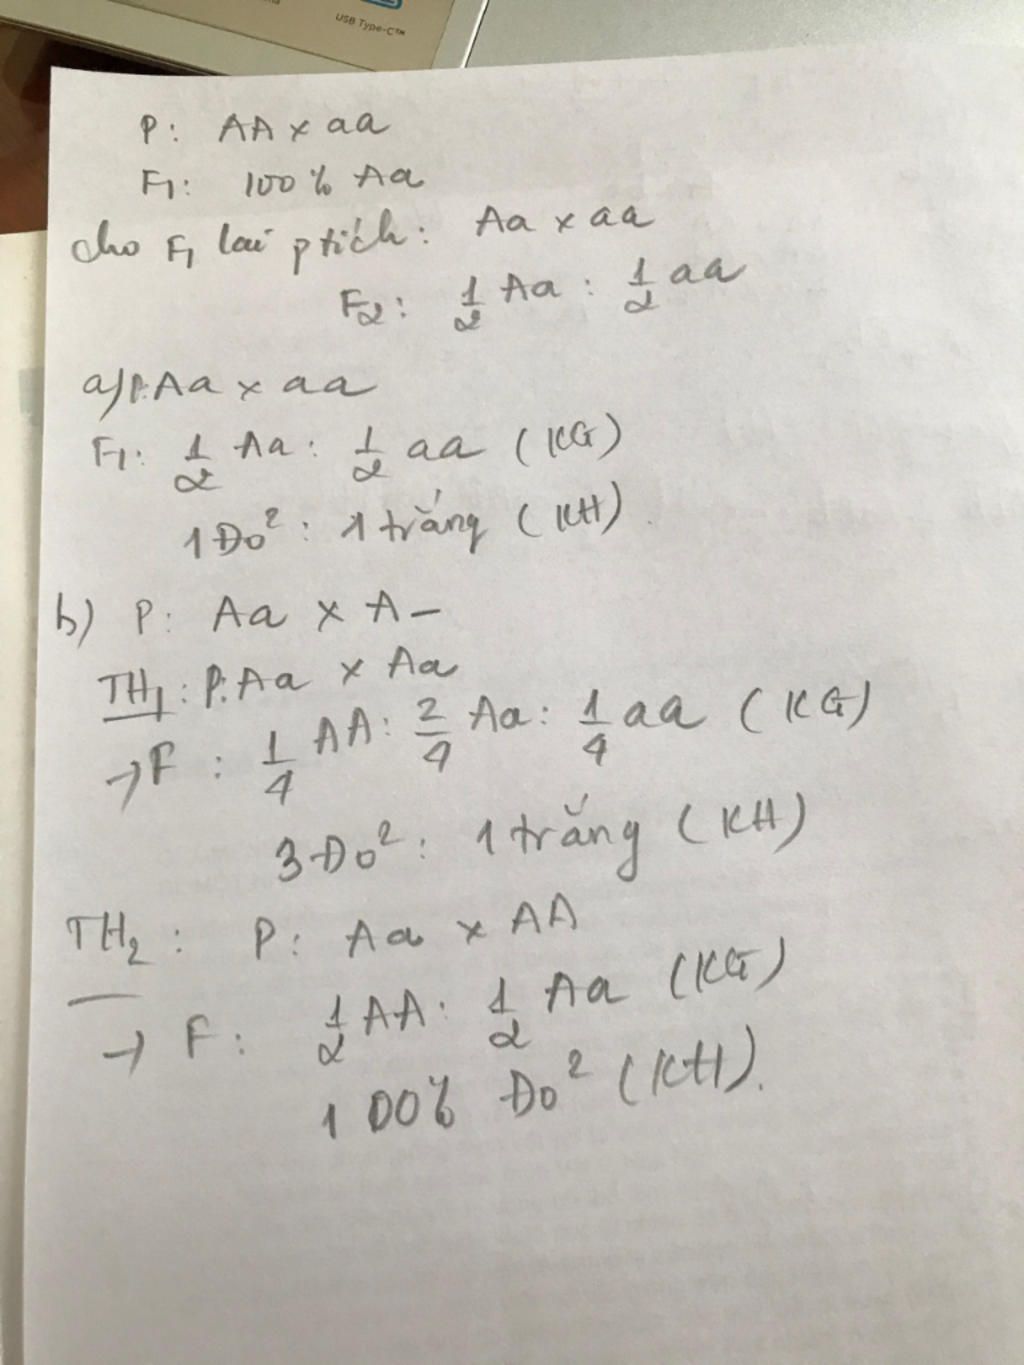 USB Type-C™
P: AA x aa
F1: 100% Aa
cho F1 lai ptích: Aa x aa
F2: 1/2 Aa : 1/2 aa
a) P: Aa x aa
F1: 1/2 Aa : 1/2 aa (KG)
1 Đỏ : 1 trắng (KH).
b) P: Aa x A–
TH1: P: Aa x Aa
→ F : 1/4 AA : 2/4 Aa : 1/4 aa (KG)
3 Đỏ : 1 trắng (KH)
TH2 : P: Aa x AA
→ F: 1/2 AA : 1/2 Aa (KG)
100% Đỏ (KH).